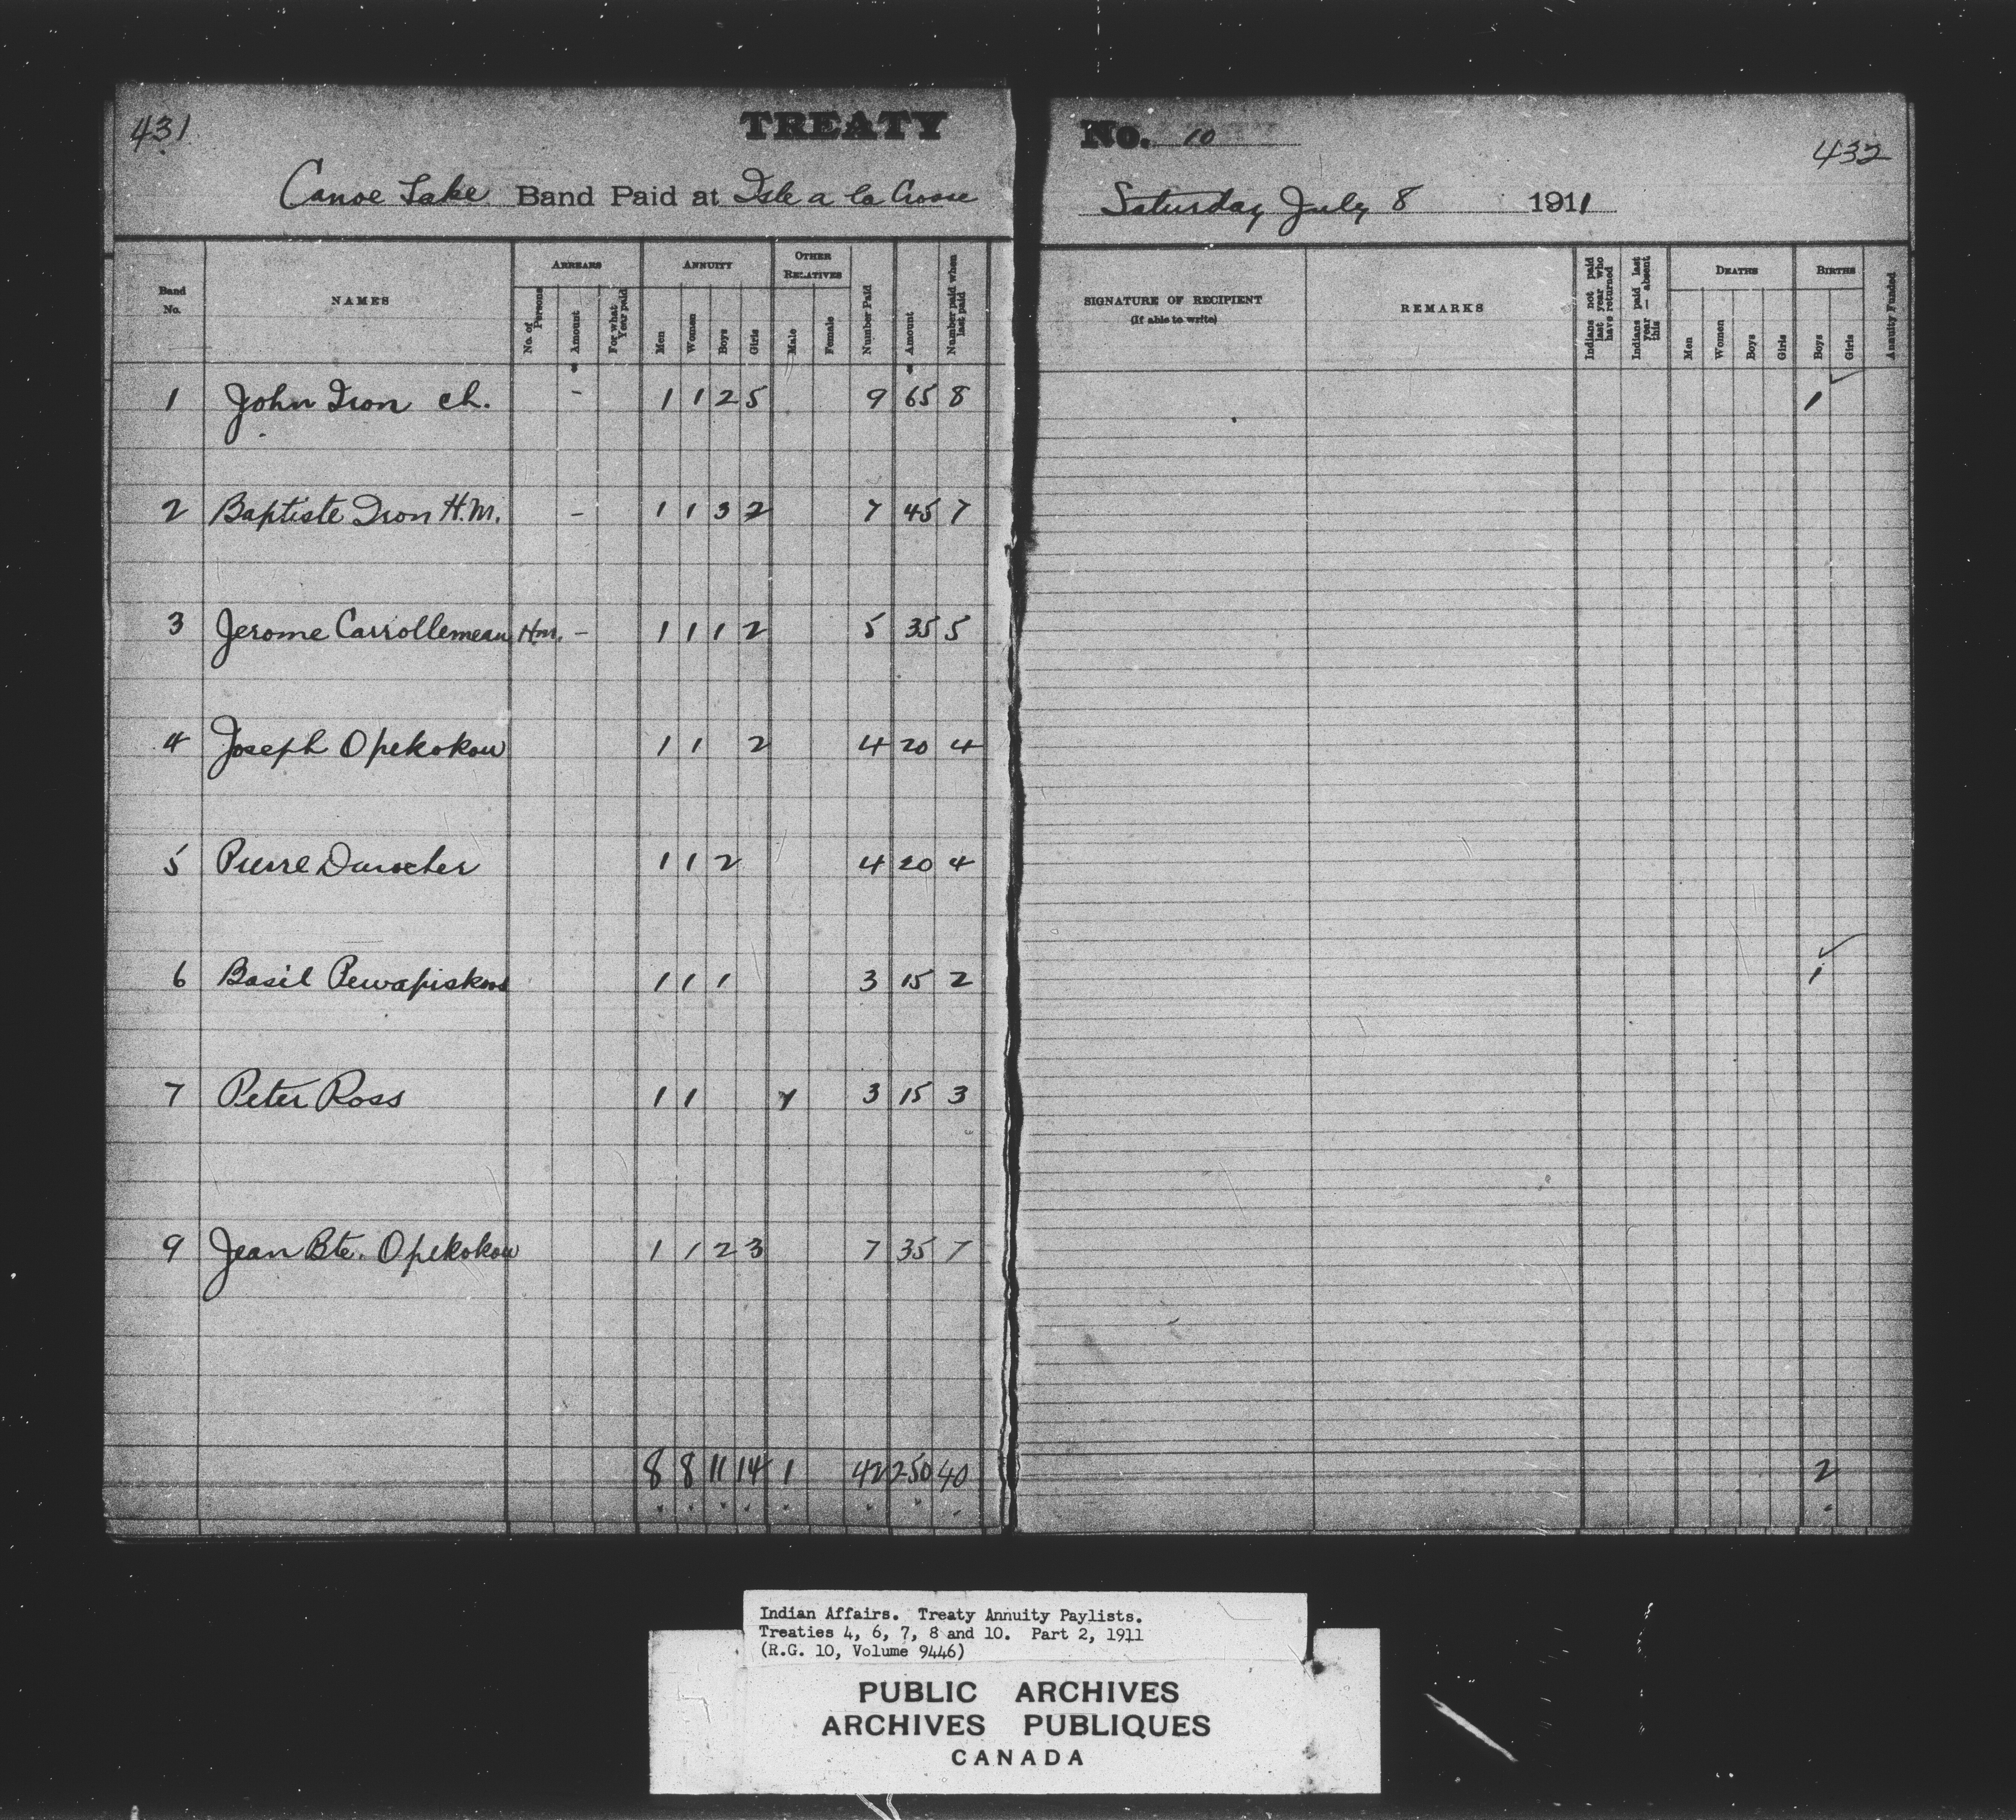 431
TREATY
Canoe Lake Band Paid at Isle a la Crosse
Band No. NAMES ARREARS No. of Persons Amount For what Year paid ANNUITY Men Women Boys Girls OTHER RELATIVES Male Female Number Paid Amount Number paid when last paid
1 John Iron ch. - 1 1 2 5 9 65 8
2 Baptiste Iron H.M. - 1 1 3 2 7 45 7
3 Jerome Carrollemeau Hm. - 1 1 1 2 5 35 5
4 Joseph Opekokow 1 1 2 4 20 4
5 Pierre Durocher 1 1 2 4 20 4
6 Basil Pewapiskoos 1 1 1 3 15 2
7 Peter Ross 1 1 1 3 15 3
9 Jean Bte. Opekokow 1 1 2 3 7 35 7
8 8 11 14 1 42 250 40
No. 10
432
Saturday July 8 1911
SIGNATURE OF RECIPIENT (If able to write) REMARKS Indians not paid last year who have returned Indians paid last year — absent this DEATHS Men Women Boys Girls BIRTHS Boys Girls Annuity Funded
1
1
2
Indian Affairs. Treaty Annuity Paylists.
Treaties 4, 6, 7, 8 and 10. Part 2, 1911
(R.G. 10, Volume 9446)
PUBLIC ARCHIVES
ARCHIVES PUBLIQUES
CANADA